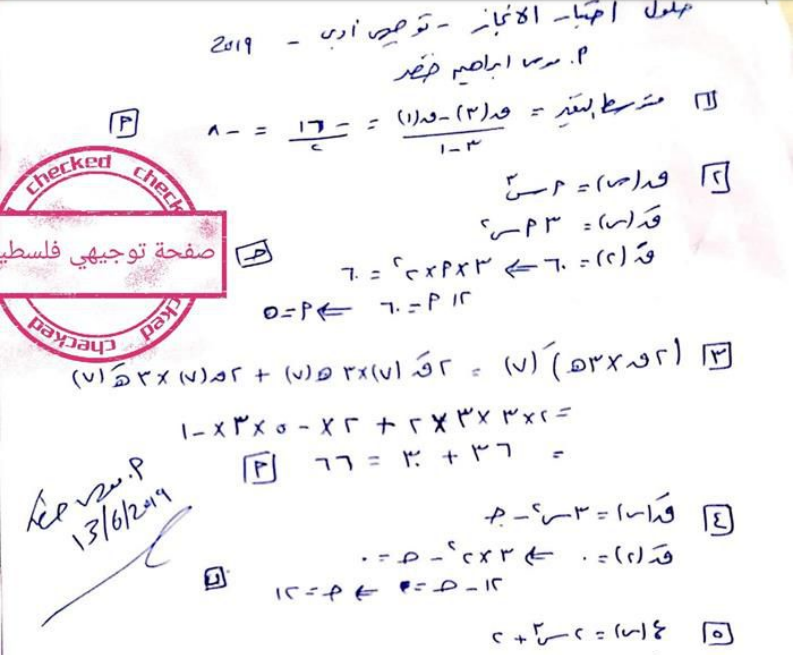 حلول اختبار الانجاز - توجيهي أدبي - 2019
م. موسى ابراهيم خضر
١ متوسط التغير = (ق(٣) - ق(١)) / (٣ - ١) = -١٦ / ٢ = -٨ أ
٢ ق(س) = أ س٣
قَ(س) = ٣ أ س٢
قَ(٢) = ٦٠ ⇐ ٣ × أ × ٢٢ = ٦٠ جـ
١٢ أ = ٦٠ ⇐ أ = ٥
٣ (٢ق × ٣هـ)َ (٧) = ٢قَ(٧) × ٣هـ(٧) + ٢ق(٧) × ٣هـَ(٧)
= ٢ × ٣ × ٣ × ٢ + ٢ × -٥ × ٣ × -١
= ٣٦ + ٣٠ = ٦٦ أ
٤ قَ(س) = ٣س٢ - جـ
قَ(٢) = ٠ ⇐ ٣ × ٢٢ - جـ = ٠
١٢ - جـ = ٠ ⇐ جـ = ١٢
٥ ع(س) = ٢س٣ + ٢
checked checked
صفحة توجيهي فلسطي
checked checked
13/6/2019